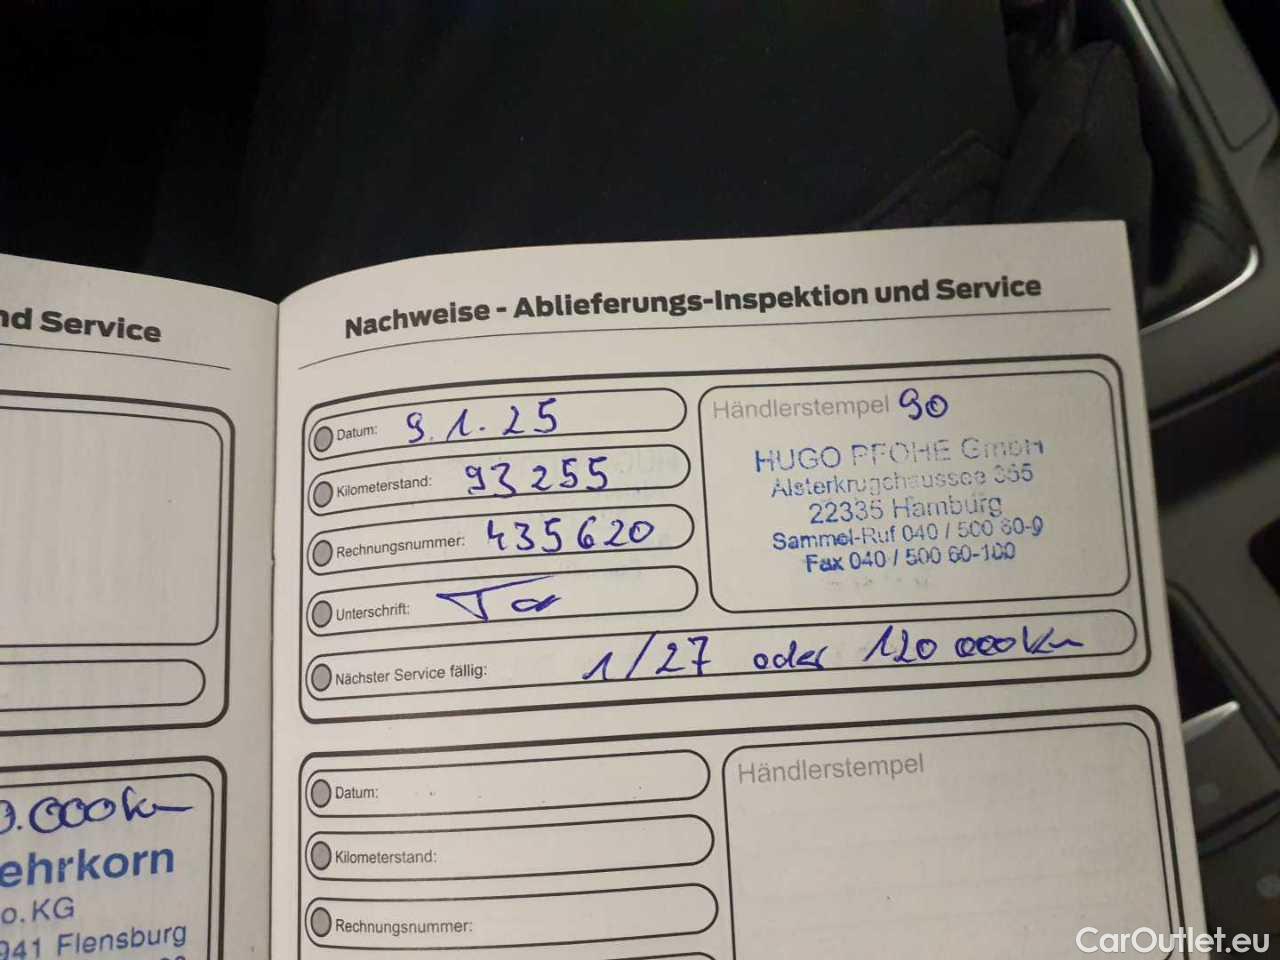 nd Service
0.000km
ehrkorn
o.KG
941 Flensburg
Nachweise - Ablieferungs-Inspektion und Service
Datum: 9.1.25
Kilometerstand: 93255
Rechnungsnummer: 435620
Unterschrift:
Händlerstempel 90
HUGO PFOHE GmbH
Alsterkrugchaussee 355
22335 Hamburg
Sammel-Ruf 040 / 500 60-0
Fax 040 / 500 60-100
Nächster Service fällig: 1/27 oder 120 000km
Datum:
Kilometerstand:
Rechnungsnummer:
Händlerstempel
CarOutlet.eu